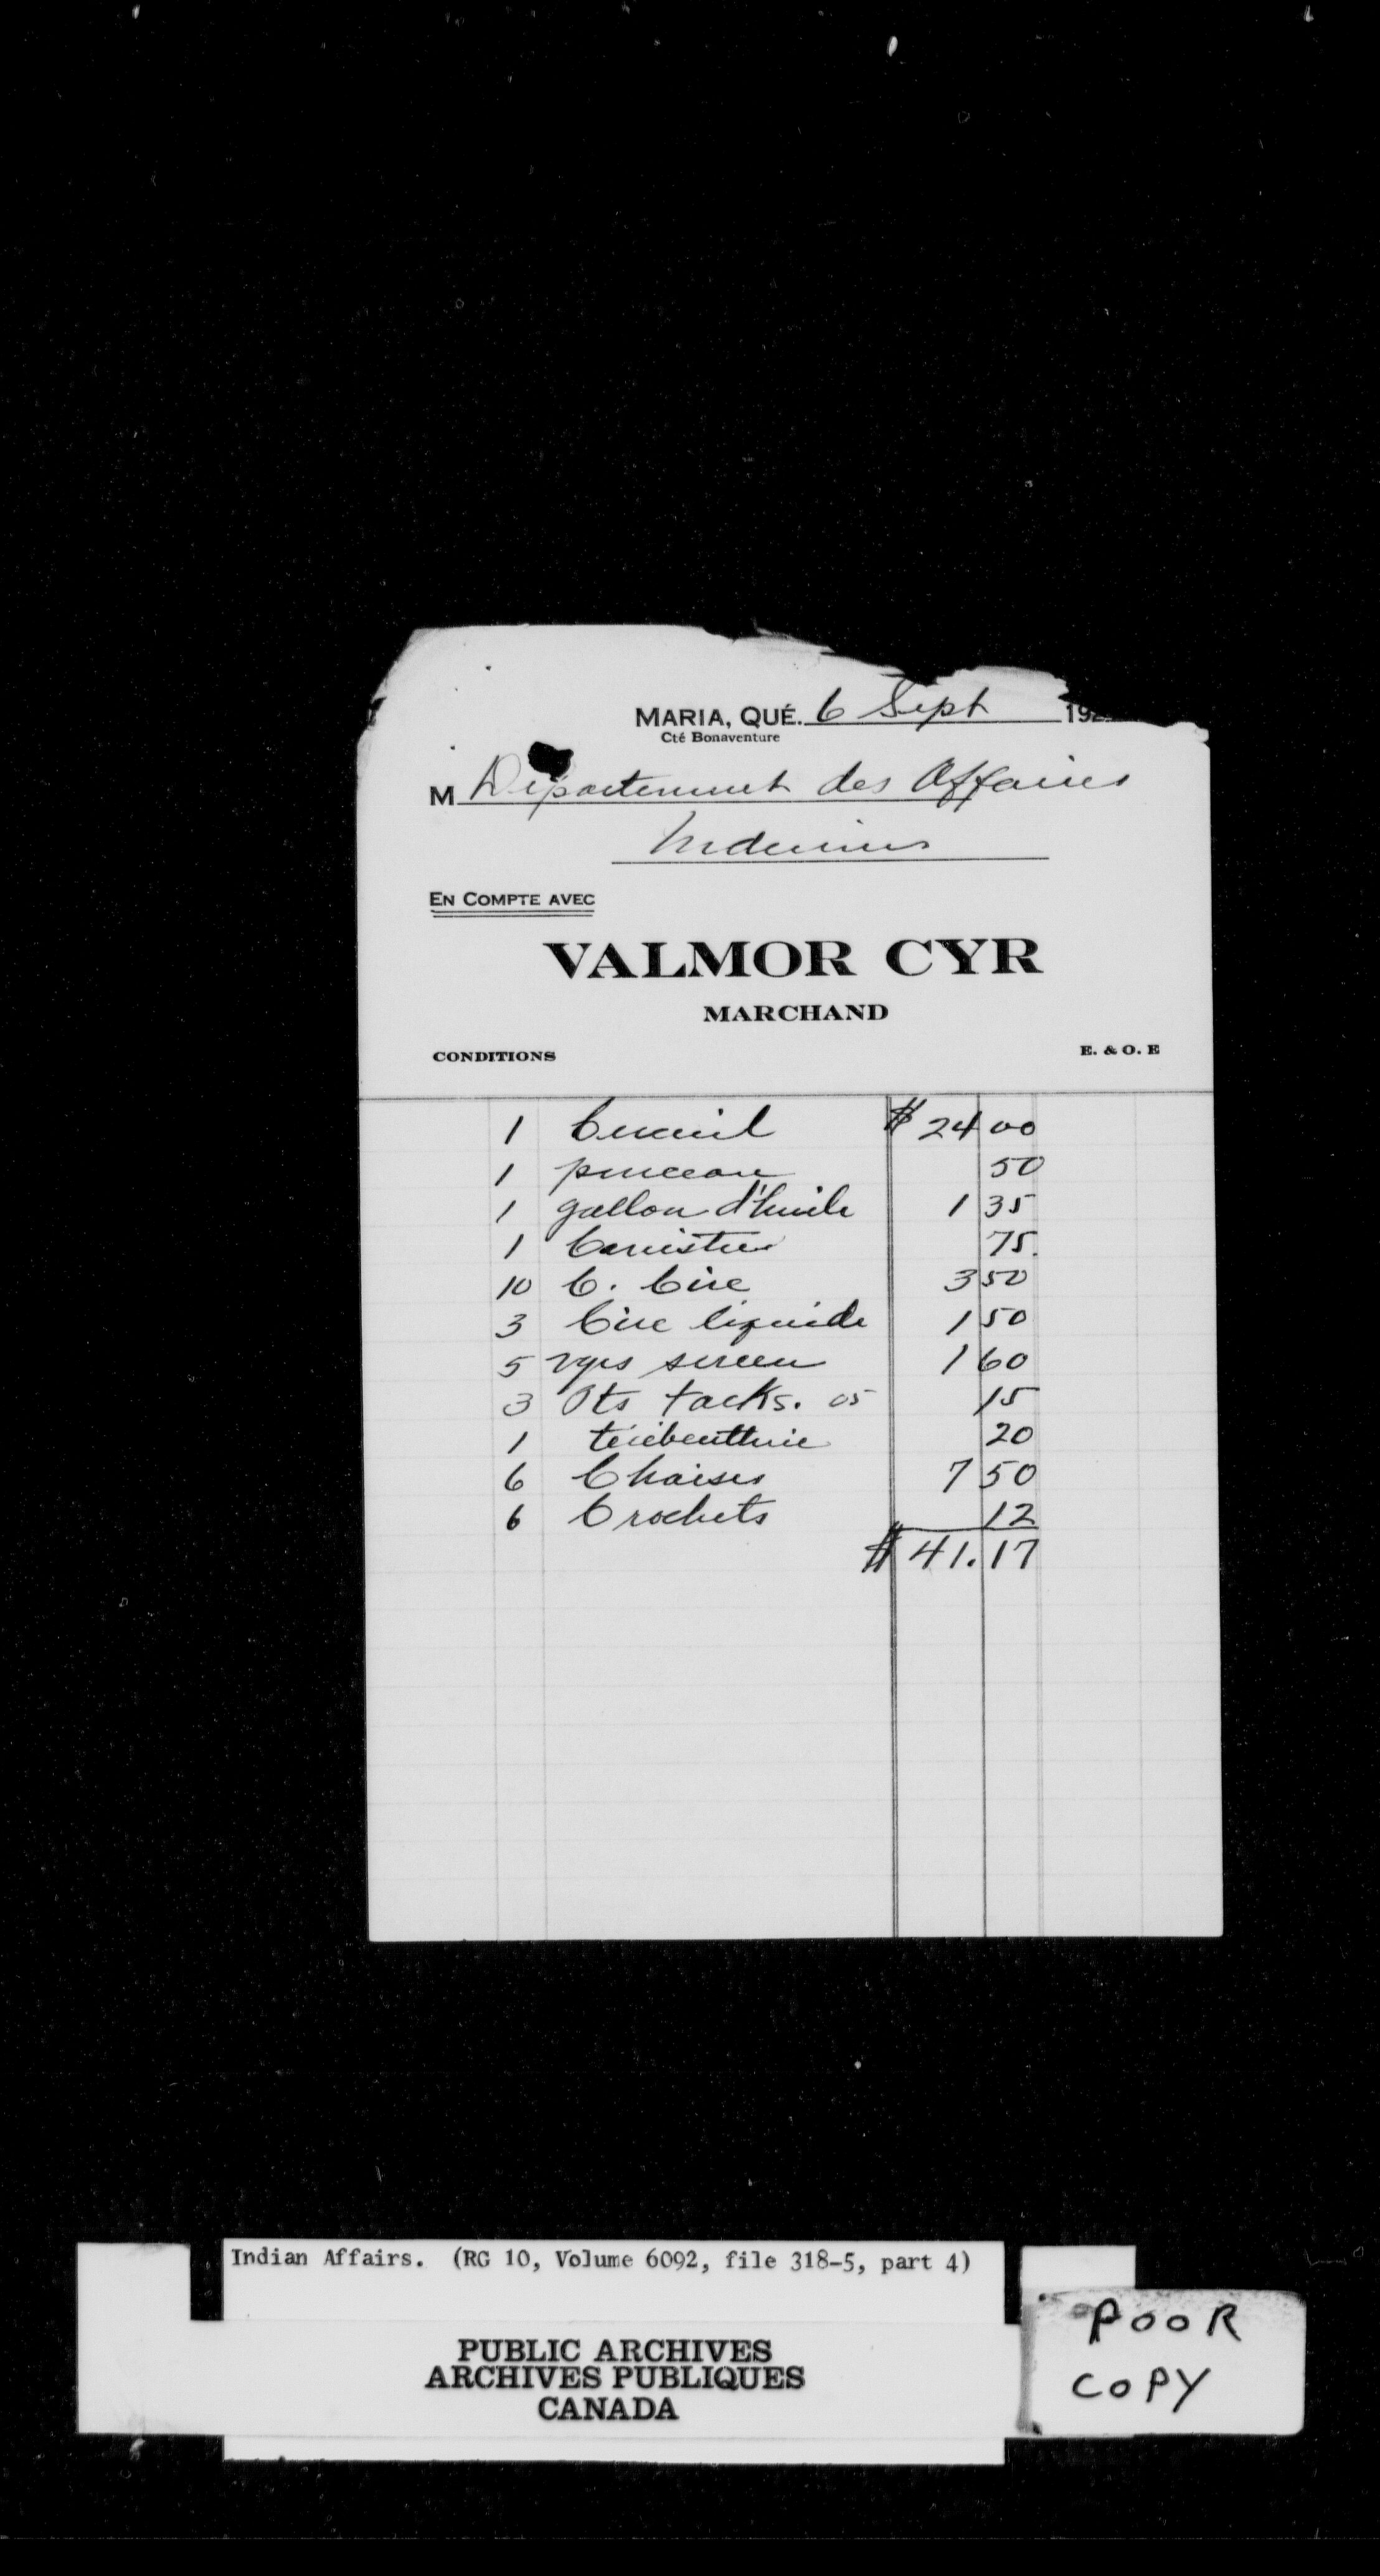 MARIA, QUÉ. 6 Sept 192
Cté Bonaventure
M Département des Affaires
Indiennes
EN COMPTE AVEC
VALMOR CYR
MARCHAND
CONDITIONS E. & O. E
1 Cercueil $ 24 00
1 pinceau 50
1 gallon d'huile 1 35
1 Canistre 75
10 C. Cire 3 50
3 Cire liquide 1 50
5 vgs screen 1 60
3 Pts tacks. 05 15
1 térébenthine 20
6 Chaises 7 50
6 Crochets 12
$ 41.17
Indian Affairs. (RG 10, Volume 6092, file 318-5, part 4)
PUBLIC ARCHIVES
ARCHIVES PUBLIQUES
CANADA
POOR
COPY